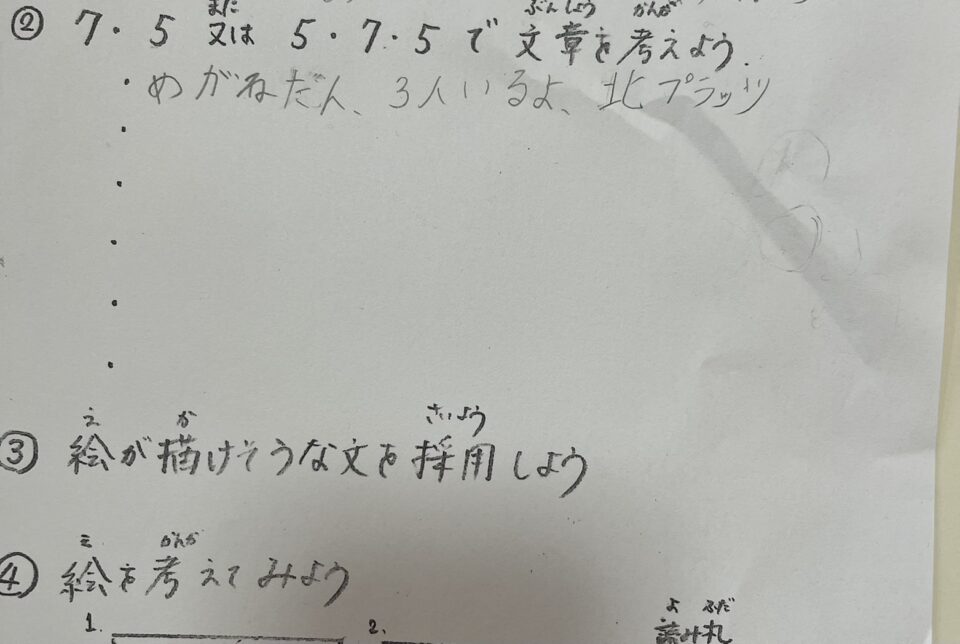 また ぶんしょう かんが
② 7・5 又は 5・7・5 で 文章を考えよう.
・めがねだん、3人いるよ、北プラッツ
・
・
・
・
・
え か さいよう
③ 絵が描けそうな文を採用しよう
え かんが
④ 絵を考えてみよう
よ ふだ
1. 2. 読み札